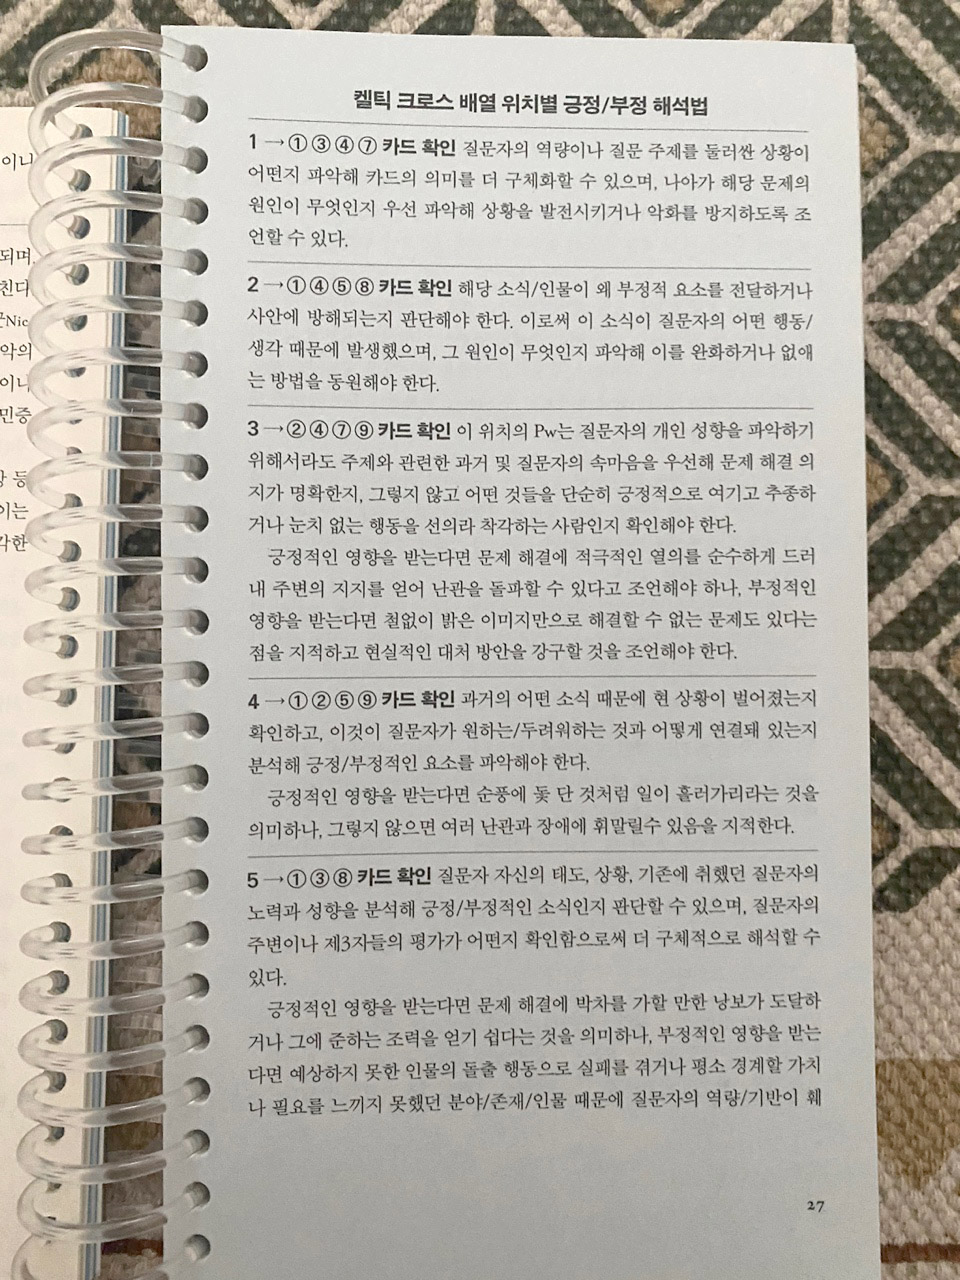 이나
되며,
친다
Nic
악의
이나
민증
상 등
이는
각한
켈틱 크로스 배열 위치별 긍정/부정 해석법
1 → ①③④⑦ 카드 확인 질문자의 역량이나 질문 주제를 둘러싼 상황이
어떤지 파악해 카드의 의미를 더 구체화할 수 있으며, 나아가 해당 문제의
원인이 무엇인지 우선 파악해 상황을 발전시키거나 악화를 방지하도록 조
언할 수 있다.
2 → ①④⑤⑧ 카드 확인 해당 소식/인물이 왜 부정적 요소를 전달하거나
사안에 방해되는지 판단해야 한다. 이로써 이 소식이 질문자의 어떤 행동/
생각 때문에 발생했으며, 그 원인이 무엇인지 파악해 이를 완화하거나 없애
는 방법을 동원해야 한다.
3 → ②④⑦⑨ 카드 확인 이 위치의 Pw는 질문자의 개인 성향을 파악하기
위해서라도 주제와 관련한 과거 및 질문자의 속마음을 우선해 문제 해결 의
지가 명확한지, 그렇지 않고 어떤 것들을 단순히 긍정적으로 여기고 추종하
거나 눈치 없는 행동을 선의라 착각하는 사람인지 확인해야 한다.
긍정적인 영향을 받는다면 문제 해결에 적극적인 열의를 순수하게 드러
내 주변의 지지를 얻어 난관을 돌파할 수 있다고 조언해야 하나, 부정적인
영향을 받는다면 철없이 밝은 이미지만으로 해결할 수 없는 문제도 있다는
점을 지적하고 현실적인 대처 방안을 강구할 것을 조언해야 한다.
4 → ①②⑤⑨ 카드 확인 과거의 어떤 소식 때문에 현 상황이 벌어졌는지
확인하고, 이것이 질문자가 원하는/두려워하는 것과 어떻게 연결돼 있는지
분석해 긍정/부정적인 요소를 파악해야 한다.
긍정적인 영향을 받는다면 순풍에 돛 단 것처럼 일이 흘러가리라는 것을
의미하나, 그렇지 않으면 여러 난관과 장애에 휘말릴수 있음을 지적한다.
5 → ①③⑧ 카드 확인 질문자 자신의 태도, 상황, 기존에 취했던 질문자의
노력과 성향을 분석해 긍정/부정적인 소식인지 판단할 수 있으며, 질문자의
주변이나 제3자들의 평가가 어떤지 확인함으로써 더 구체적으로 해석할 수
있다.
긍정적인 영향을 받는다면 문제 해결에 박차를 가할 만한 낭보가 도달하
거나 그에 준하는 조력을 얻기 쉽다는 것을 의미하나, 부정적인 영향을 받는
다면 예상하지 못한 인물의 돌출 행동으로 실패를 겪거나 평소 경계할 가치
나 필요를 느끼지 못했던 분야/존재/인물 때문에 질문자의 역량/기반이 훼
27